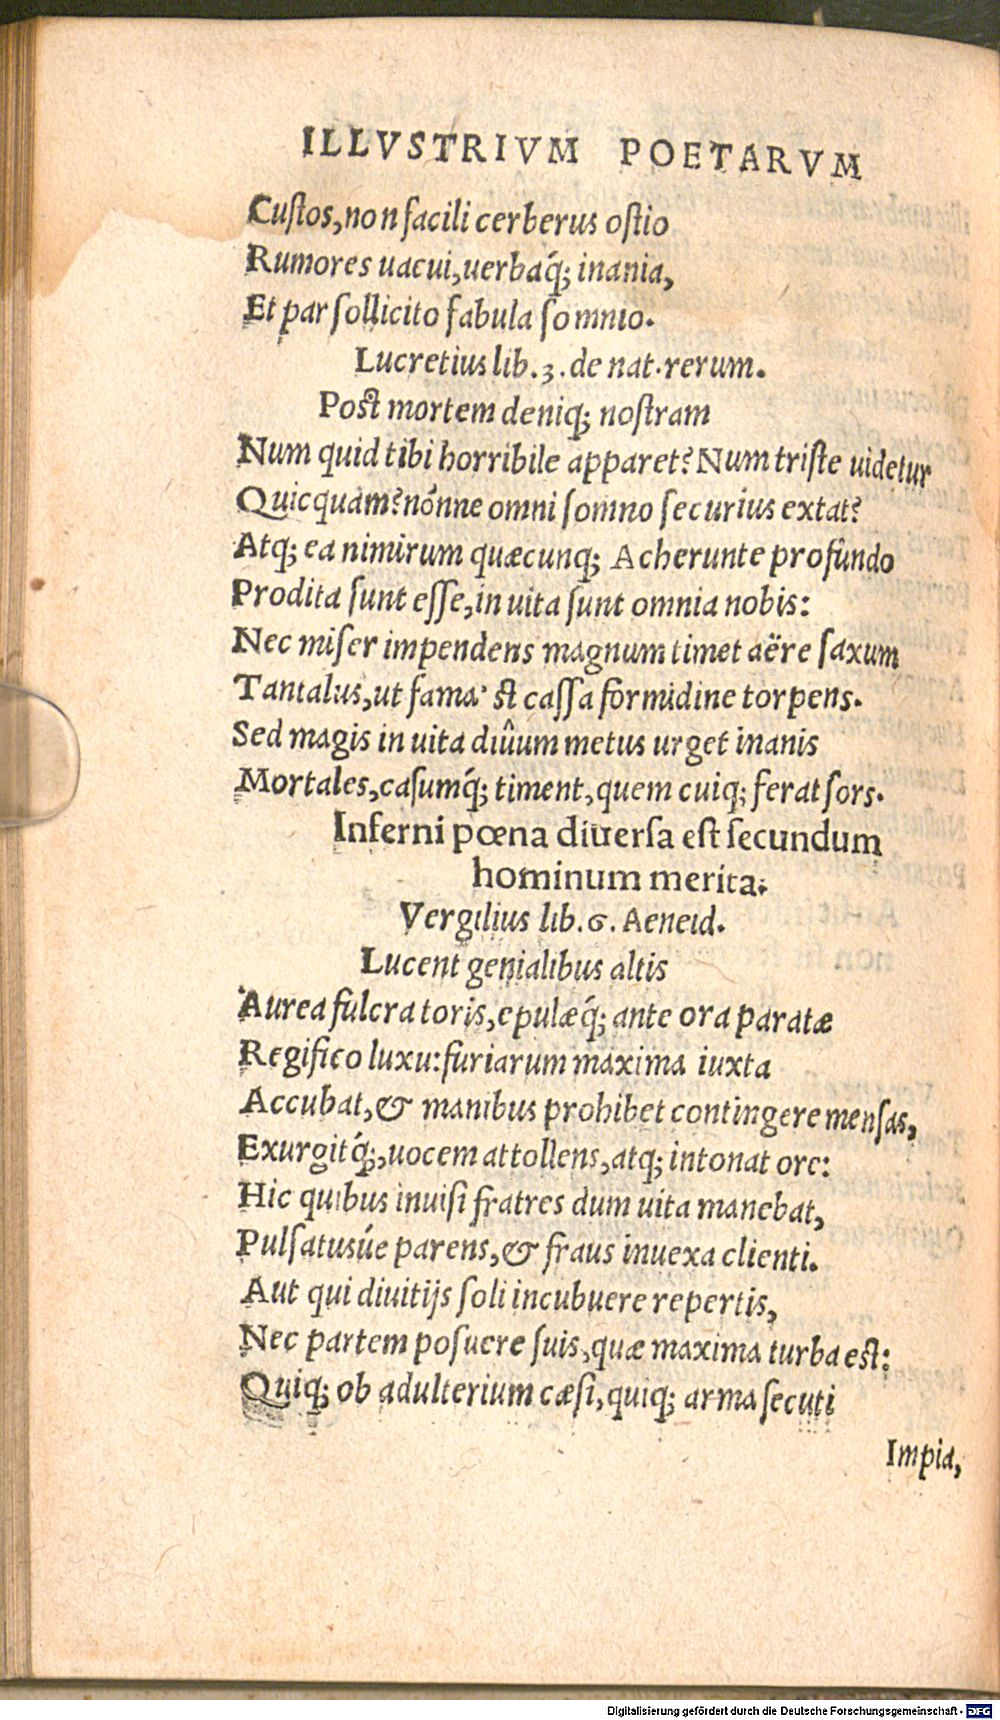 ILLVSTRIVM POETARVM
Cuſtos, non facili cerberus oſtio
Rumores uacui, uerbaq́; inania,
Et par ſollicito fabula ſomnio.
Lucretius lib. 3. de nat. rerum.
Poſt mortem deniq; noſtram
Num quid tibi horribile apparet? Num triſte uidetur
Quicquam? nónne omni ſomno ſecurius extat?
Atq; ea nimirum quæcunq; Acherunte profundo
Prodita ſunt eſſe, in uita ſunt omnia nobis:
Nec miſer impendens magnum timet aëre ſaxum
Tantalus, ut fama' ſt caſſa formidine torpens.
Sed magis in uita diuûm metus urget inanis
Mortales, caſumq́; timent, quem cuiq; ferat ſors.
Inferni pœna diuerſa eſt ſecundum
hominum merita.
Vergilius lib. 6. Aeneid.
Lucent genialibus altis
Aurea fulcra toris, epulæq́; ante ora paratæ
Regifico luxu: furiarum maxima iuxta
Accubat, & manibus prohibet contingere menſas,
Exurgitq́;, uocem attollens, atq; intonat ore:
Hic quibus inuiſi fratres dum uita manebat,
Pulſatusúe parens, & fraus inuexa clienti.
Aut qui diuitijs ſoli incubuere repertis,
Nec partem poſuere ſuis, quæ maxima turba eſt:
Quiq; ob adulterium cæſi, quiq; arma ſecuti
Impia,
Digitalisierung gefördert durch die Deutsche Forschungsgemeinschaft - DFG